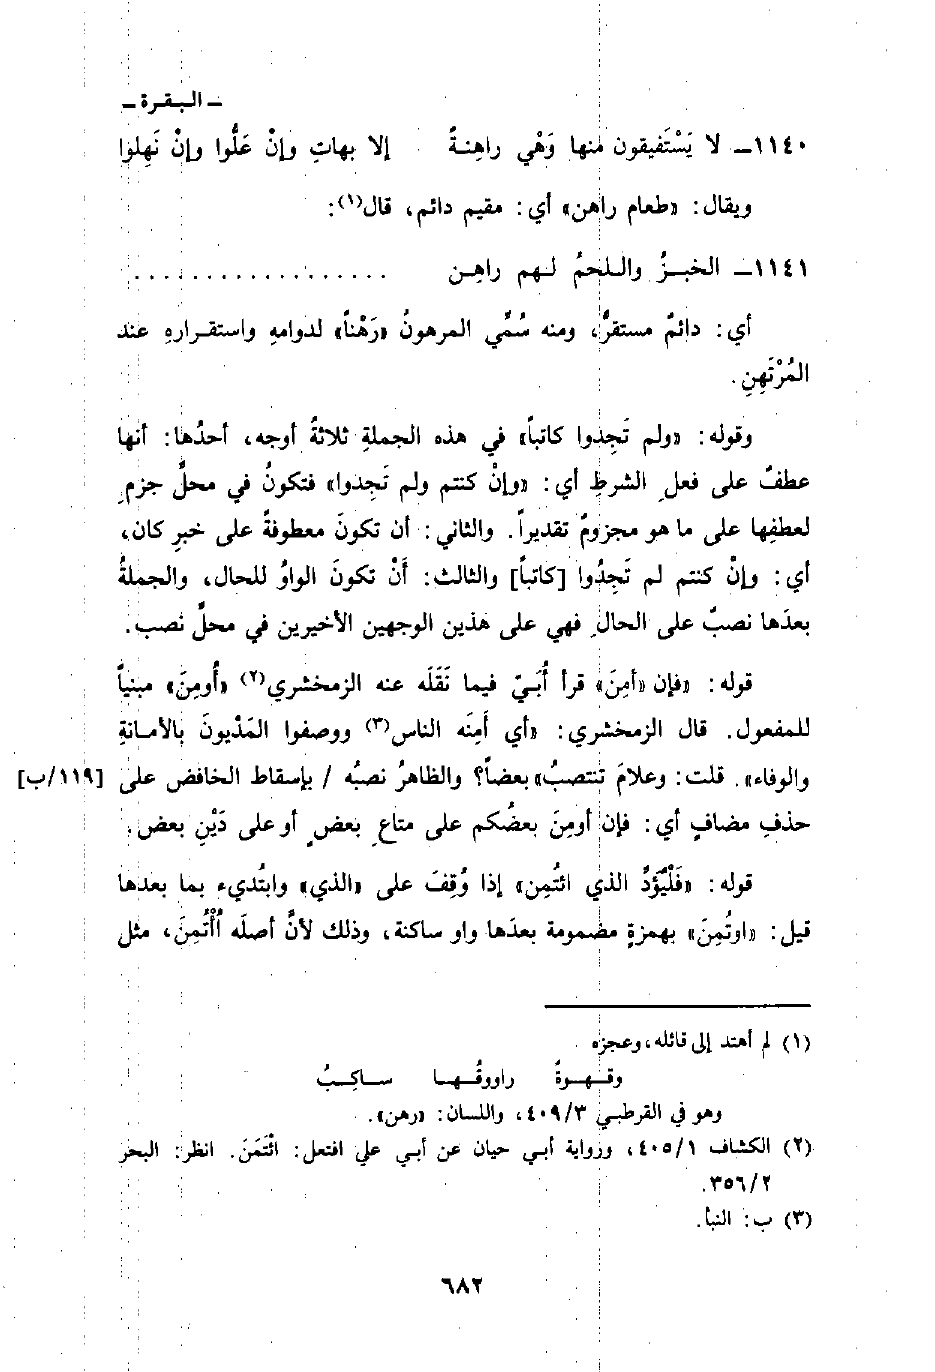 ـ البقرة ـ
١١٤٠ـ لا يَسْتَفيقون منها وَهْي راهِنةٌ إلا بهاتِ وإنْ عَلُّوا وإنْ نَهِلوا
ويقال: «طعام راهن» أي: مقيم دائم، قال(١):
١١٤١ـ الخبزُ واللحمُ لهم راهِن . . . . . . . . . . . . . . . . . .
أي: دائمٌ مستقرٌّ، ومنه سُمِّي المرهونُ «رَهْناً» لدوامهِ واستقرارهِ عند
المُرْتَهِنِ.
وقوله: «ولم تَجِدوا كاتباً» في هذه الجملةِ ثلاثةُ أوجه، أحدُها: أنها
عطفٌ على فعلِ الشرطِ أي: «وإنْ كنتم ولم تَجِدوا» فتكونُ في محلِّ جزمٍ
لعطفِها على ما هو مجزومٌ تقديراً. والثاني: أن تكونَ معطوفةً على خبرِ كان،
أي: وإنْ كنتم لم تَجِدُوا [كاتباً] والثالث: أَنْ تكونَ الواوُ للحال، والجملةُ
بعدَها نصبٌ على الحالِ فهي على هذين الوجهين الأخيرين في محلِّ نصب.
قوله: «فإن «أمِنَ» قرأ أُبَيّ فيما نَقَلَه عنه الزمخشري(٢) «أُومِنَ» مبنياً
للمفعول. قال الزمخشري: «أي أَمِنَه الناس(٣) ووصفوا المَدْيونَ بالأمانةِ
والوفاء». قلت: وعلامَ تنتصبُ» بعضاً؟ والظاهرُ نصبُه / بإسقاط الخافض على [١١٩/ب]
حذفِ مضافٍ أي: فإن أومِنَ بعضُكم على متاعِ بعضٍ أو على دَيْنِ بعض.
قوله: «فَلْيُؤَدِّ الذي ائتُمِن» إذا وُقِفَ على «الذي» وابتُديء بما بعدها
قيل: «اوتُمِنَ» بهمزةٍ مضمومة بعدَها واو ساكنة، وذلك لأنَّ أصلَه اُأْتُمِنَ، مثل
(١) لم أهتد إلى قائله، وعجزه
وقهوةٌ راووقُها ساكِبُ
وهو في القرطبي ٤٠٩/٣، واللسان: «رهن».
(٢) الكشاف ٤٠٥/١، ورواية أبي حيان عن أبي علي افتعل: ائْتَمَنَ. انظر: البحر
٣٥٦/٢.
(٣) ب: النبأ.
٦٨٢